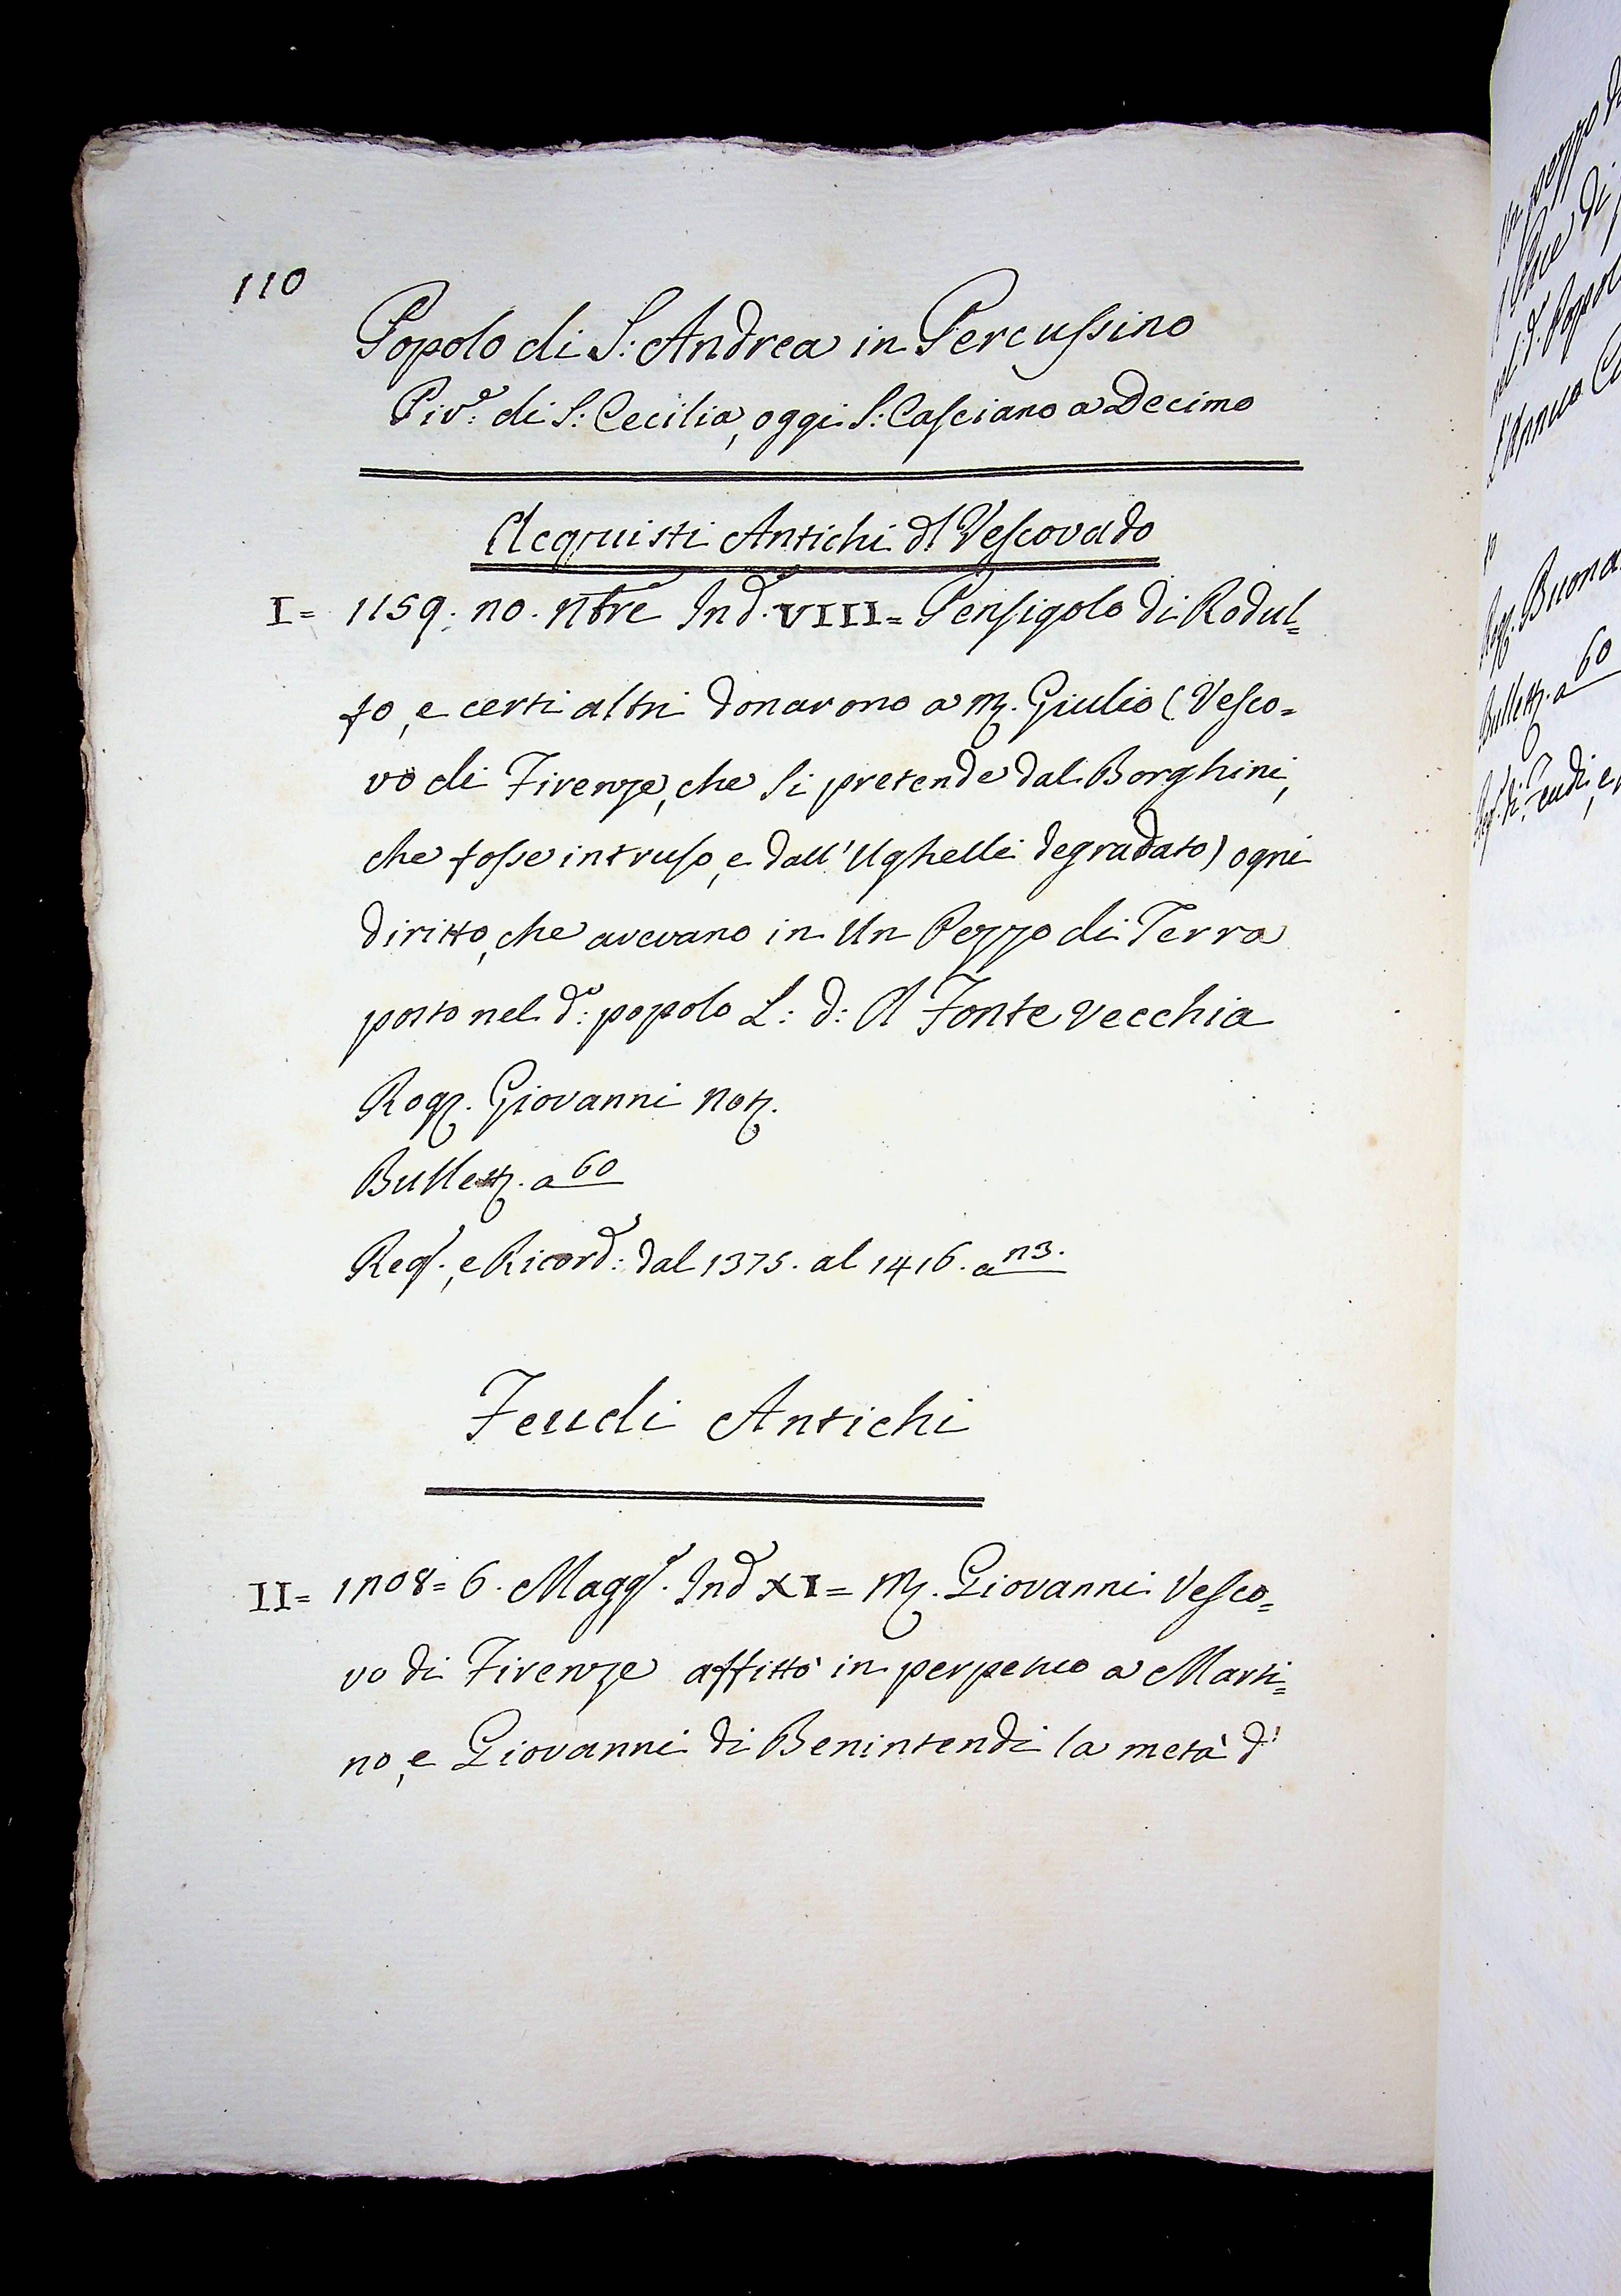 110
Popolo di S: Andrea in Percussino
Piv.e di S: Cecilia, oggi S: Casciano a Decimo
Acquisti Antichi dl Vescovado
I= 1159. 20. Nbre Ind. VIII= Pensigolo di Rodul=
fo, e certi altri donarono a M. Giulio (Vesco=
vo di Firenze, che si pretende dal Borghini,
che fosse intruso, e dall'Ughelli degradato) ogni
diritto, che avevano in Un Pezzo di Terra
posto nel d.o popolo L: d: A Fonte vecchia
Rog. Giovanni Not.
Bullett. a 60
Reg. e Ricord: dal 1375. al 1416. a 23.
Feudi Antichi
II= 1208= 6. Magg. Ind XI= M. Giovanni Vesco=
vo di Firenze affittò in perpetuo a Marti=
no, e Giovanni di Benintendi la metà d'
un pezzo d
nel d. Popol
L'Annuo C
Rog. Buona
Bullett. a 60
Reg. di Feudi, e